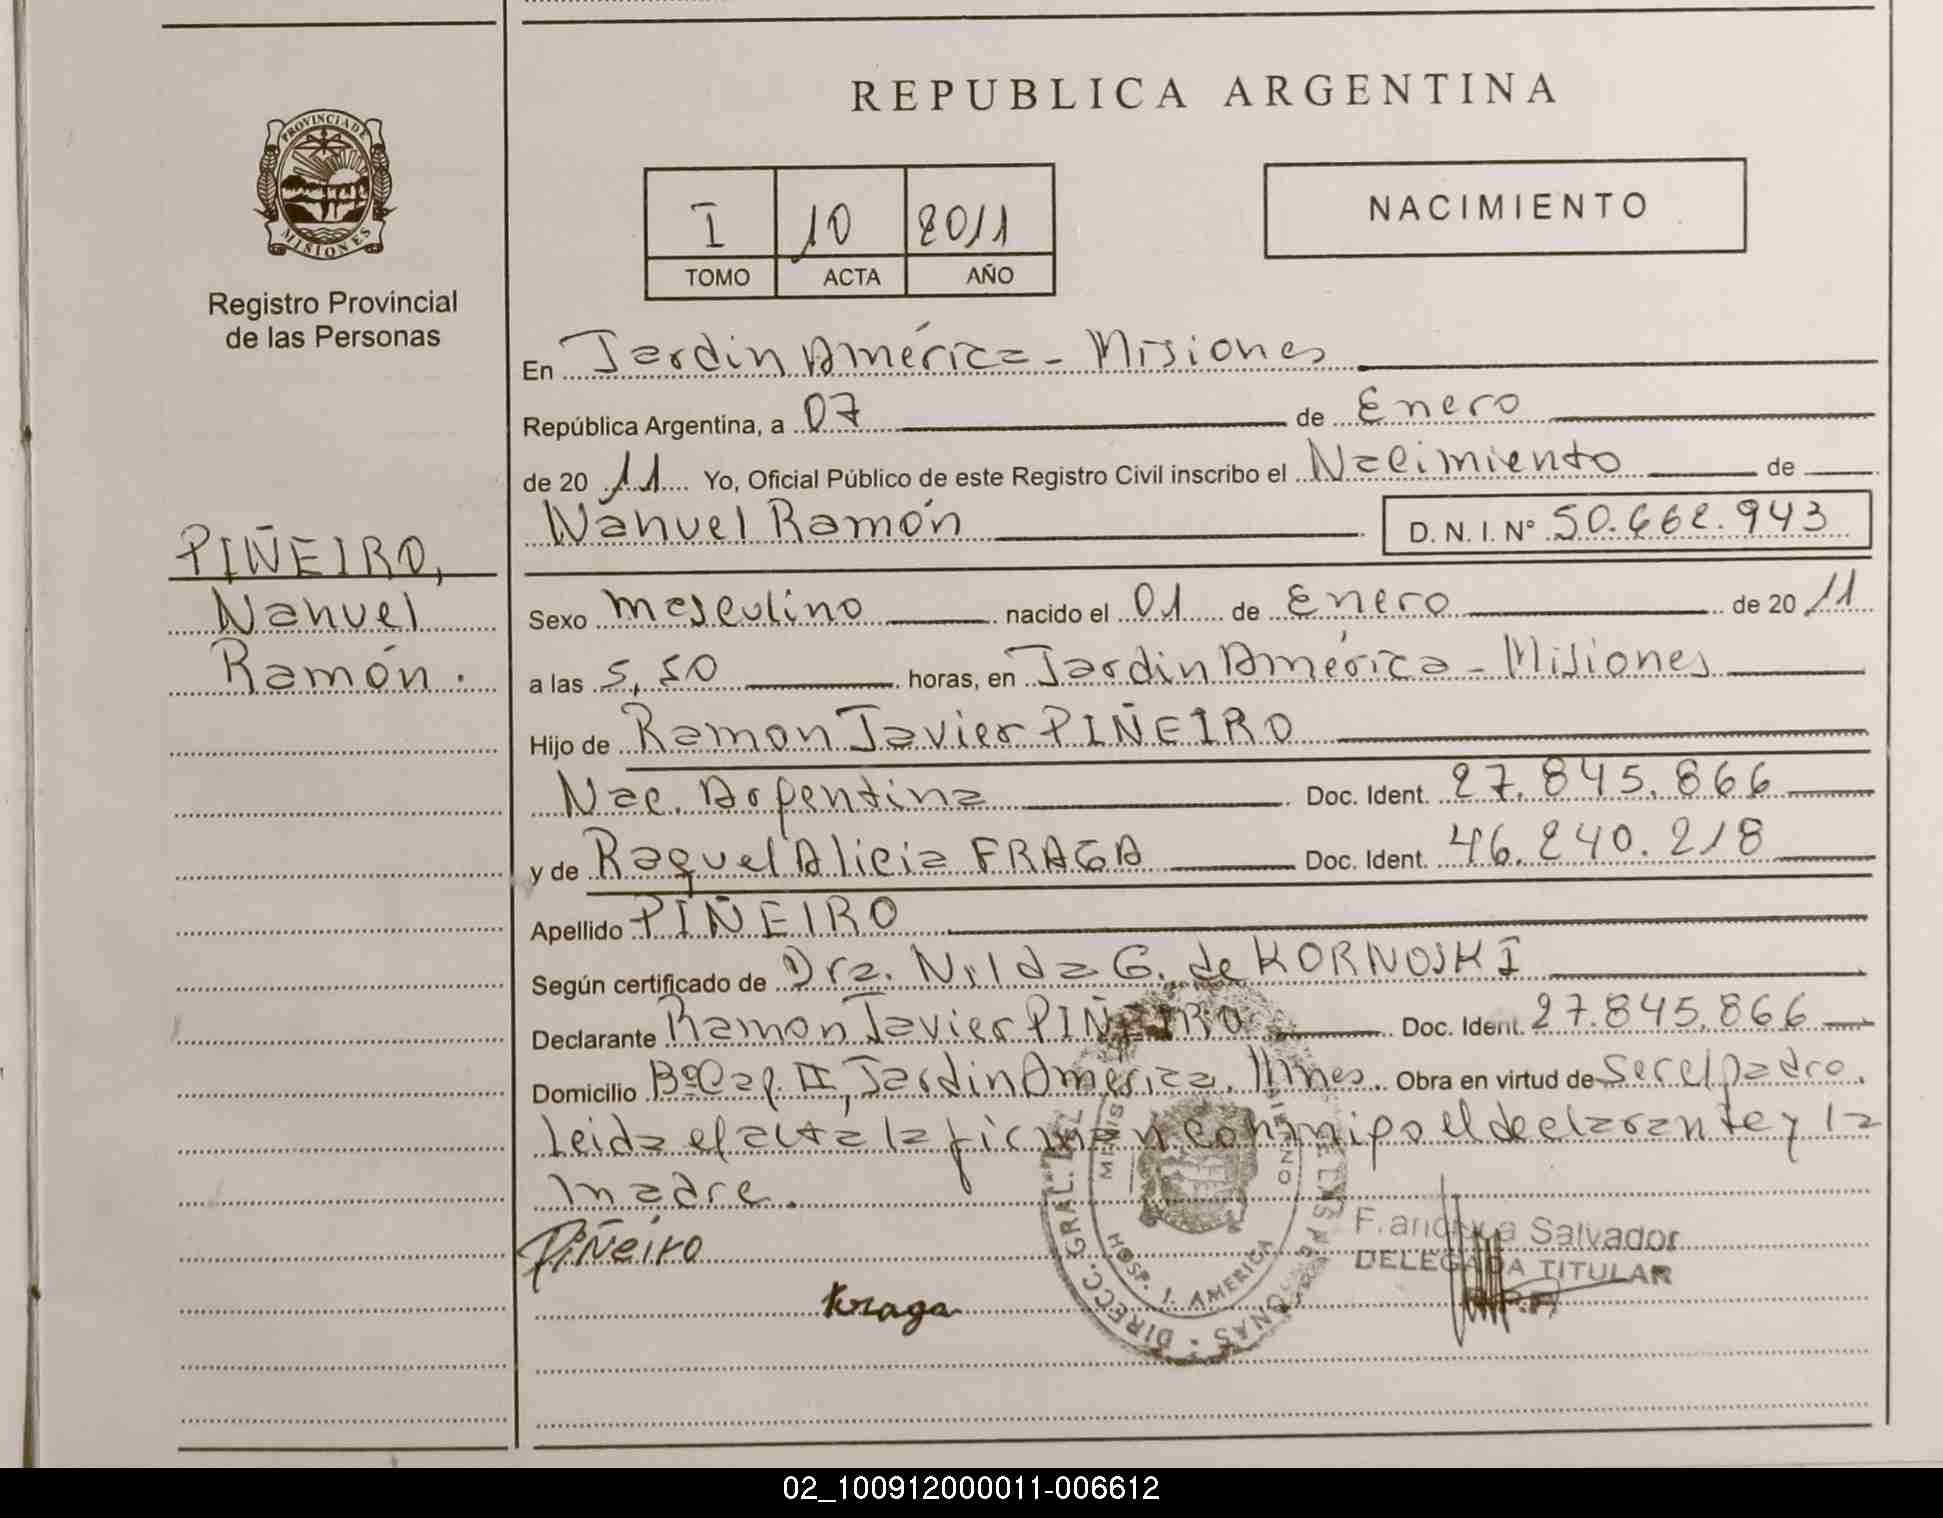 REPUBLICA ARGENTINA
PROVINCIA DE
MISIONES
Registro Provincial
de las Personas
I 10 2011
TOMO ACTA AÑO
NACIMIENTO
En Jardin América - Misiones
República Argentina, a 07 de Enero
de 20 11 Yo, Oficial Público de este Registro Civil inscribo el Nacimiento de
Nahuel Ramón D. N. I. Nº 50.662.943
PIÑEIRO,
Nahuel
Ramón.
Sexo masculino nacido el 01 de Enero de 20 11
a las 5,50 horas, en Jardin América - Misiones
Hijo de Ramon Javier PIÑEIRO
Nac. Argentina Doc. Ident. 27.845.866
y de Raquel Alicia FRAGA Doc. Ident. 46.240.218
Apellido PIÑEIRO
Según certificado de Dra. Nilda G. de KORNOSKI
Declarante Ramon Javier PIÑEIRO Doc. Ident. 27.845.866
Domicilio Bº Cap. II, Jardin America, Mnes. Obra en virtud de Ser el padre.
Leida el acta la firman conmigo el declarante y la
madre.
Piñeiro
Fraga
DIRECC. GRAL. DEL
DE LAS PERSONAS
HOSP. J. AMERICA
Salvador
DELEGADA TITULAR
02_100912000011-006612